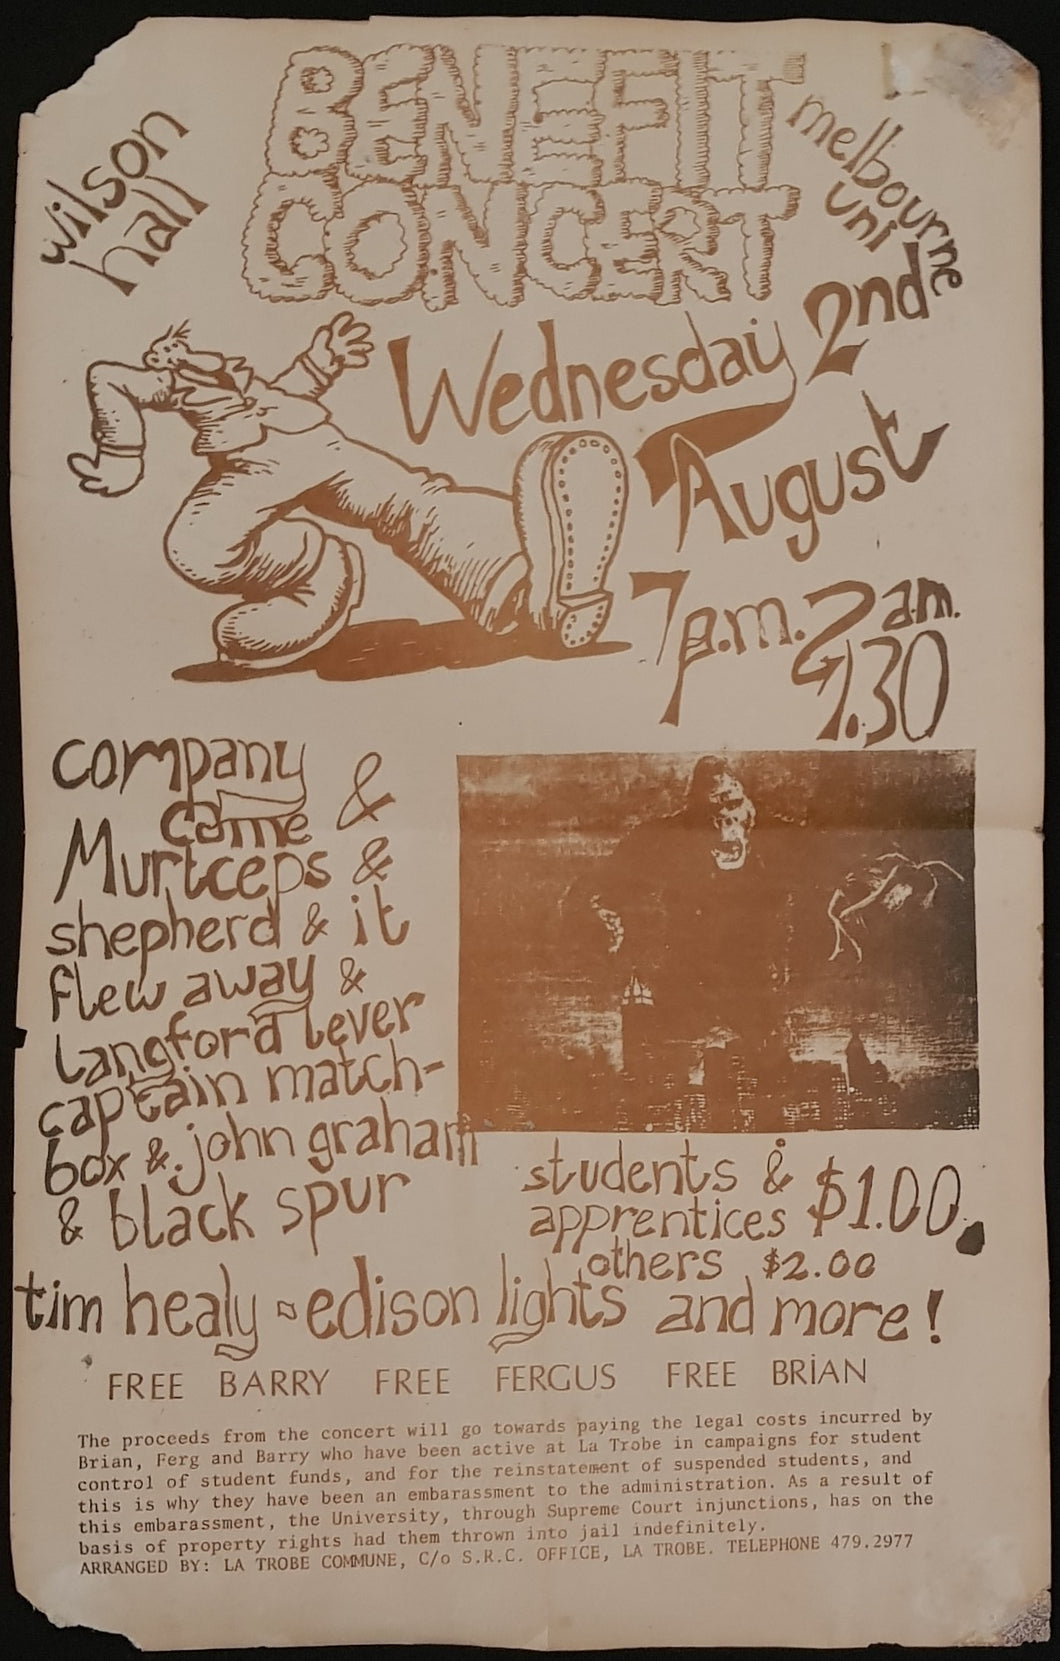 BENEFIT
CONCERT
wilson
hall
melbourne
uni
Wednesday 2nd
August
7p.m. 2 am.
4.30
company
came &
Murtceps &
shepherd & it
flew away &
langford lever
captain match-
box & john graham
& black spur
students &
apprentices $1.00.
others $2.00
tim healy edison lights and more!
FREE BARRY FREE FERGUS FREE BRIAN
The proceeds from the concert will go towards paying the legal costs incurred by
Brian, Ferg and Barry who have been active at La Trobe in campaigns for student
control of student funds, and for the reinstatement of suspended students, and
this is why they have been an embarassment to the administration. As a result of
this embarassment, the University, through Supreme Court injunctions, has on the
basis of property rights had them thrown into jail indefinitely.
ARRANGED BY: LA TROBE COMMUNE, C/o S.R.C. OFFICE, LA TROBE. TELEPHONE 479.2977